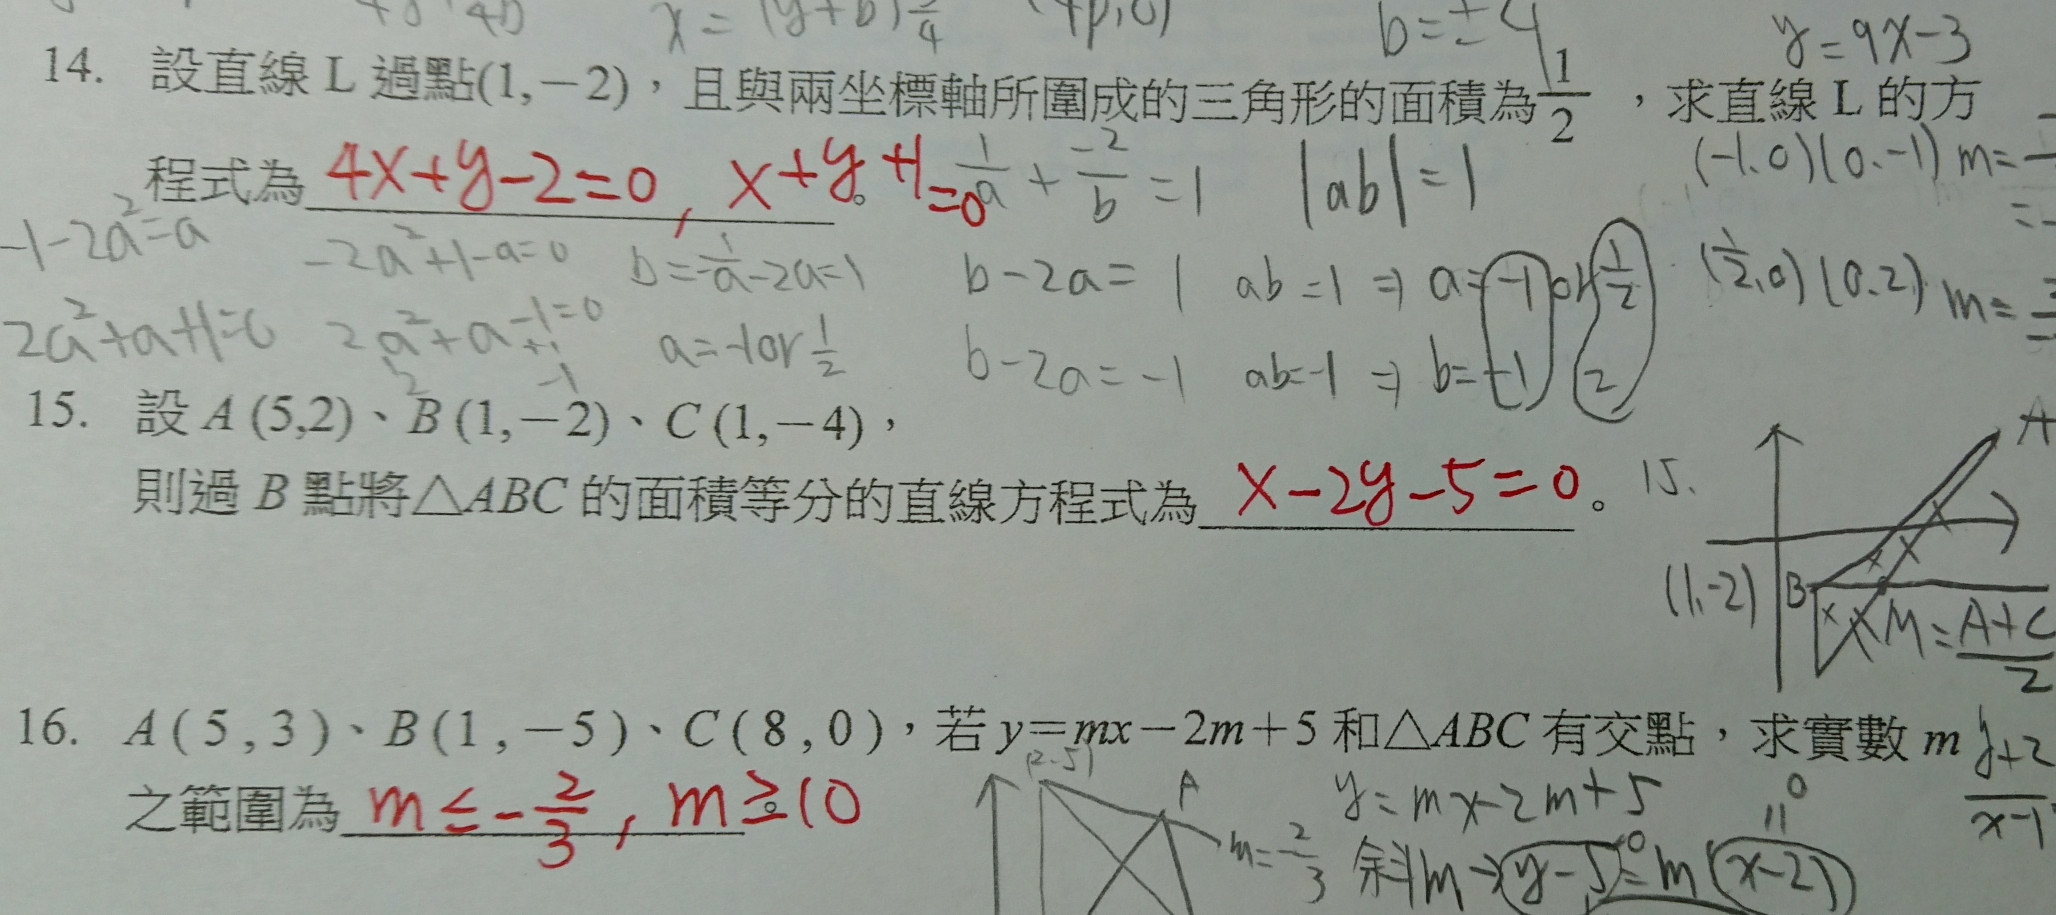 x = (y+b)3/4
b=±4
y=9x-3
14. 設直線 L 過點(1,-2)，且與兩坐標軸所圍成的三角形的面積為1/2，求直線 L 的方
程式為 4x+y-2=0, x+y+1=0。 1/a + -2/b = 1 |ab|=1 (-1.0)(0.-1) m=
-1-2a²=a -2a²+1-a=0 b=1/a-2a=1 b-2a=1 ab=1 ⇒ a=-1 or 1/2 (1/2,0)(0.2) m=
2a²+a+1=0 2a²+a-1=0 a=-1or 1/2 b-2a=-1 ab=-1 ⇒ b=-1 2
15. 設 A (5,2)、B (1,-2)、C (1,-4)，
則過 B 點將△ABC 的面積等分的直線方程式為 x-2y-5=0。
15.
A
(1,-2) B M=A+C/2
16. A ( 5 , 3 )、B ( 1 , -5 )、C ( 8 , 0 )，若 y=mx-2m+5 和△ABC 有交點，求實數 m
之範圍為 m≤-2/3, m≥10。
(2.5) A y=mx-2m+5 y+2/x-1
m=-2/3 斜m→y-5=m(x-2)